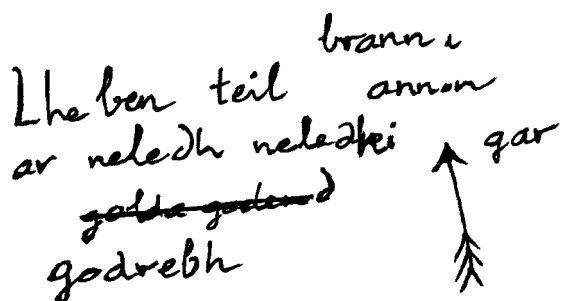 branni
Lheben teil annon
ar neledh neledhi gar
godrebh